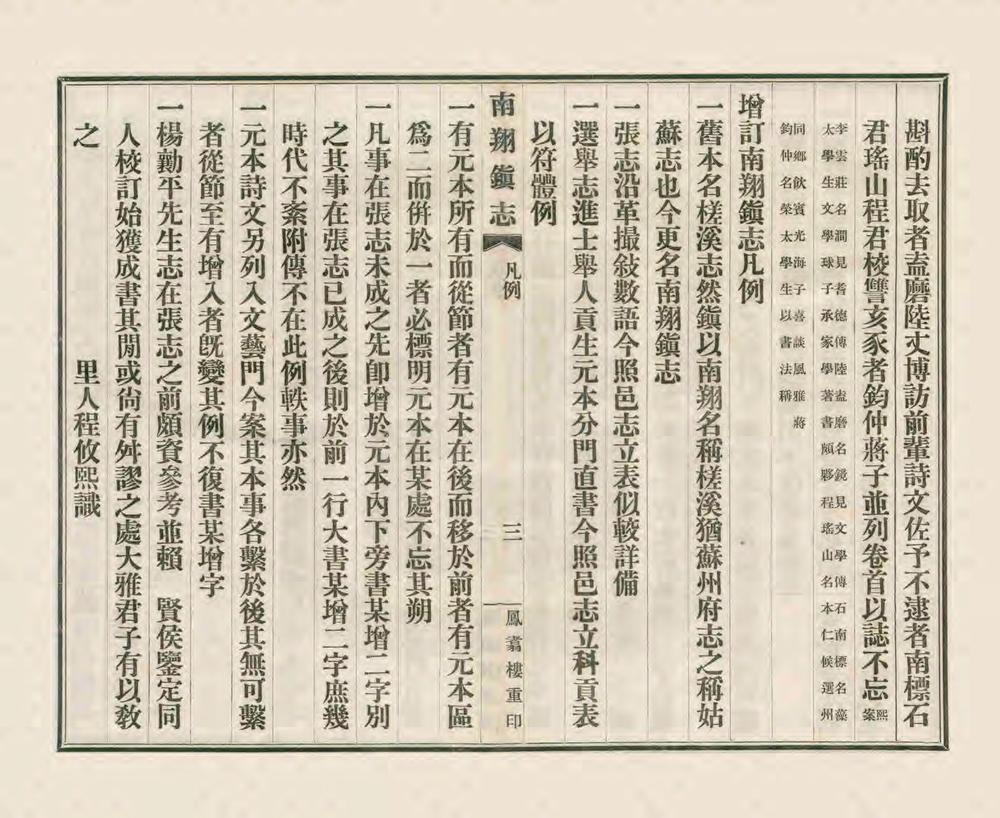 斟酌去取者盍磨陸丈博訪前輩詩文佐予不逮者南標石
君瑤山程君校讐亥豕者鈞仲蔣子並列卷首以誌不忘熙案
李雲莊名澗見耆德傳陸盍磨名鏡見文學傳石南標名藻
太學生文學球子承家學著書頗夥程瑤山名本仁候選州
同鄉飲賓光海子喜談風雅蔣
鈞仲名榮太學生以書法稱
增訂南翔鎮志凡例
一舊本名槎溪志然鎮以南翔名稱槎溪猶蘇州府志之稱姑
蘇志也今更名南翔鎮志
一張志沿革撮敍數語今照邑志立表似較詳備
一選舉志進士舉人貢生元本分門直書今照邑志立科貢表
以符體例
南翔鎮志 凡例 三 鳳翥樓重印
一有元本所有而從節者有元本在後而移於前者有元本區
爲二而併於一者必標明元本在某處不忘其朔
一凡事在張志未成之先卽增於元本內下旁書某增二字別
之其事在張志已成之後則於前一行大書某增二字庶幾
時代不紊附傳不在此例軼事亦然
一元本詩文另列入文藝門今案其本事各繫於後其無可繫
者從節至有增入者旣變其例不復書某增字
一楊勤平先生志在張志之前頗資參考並賴 賢侯鑒定同
人校訂始獲成書其閒或尙有舛謬之處大雅君子有以敎
之 里人程攸熙識